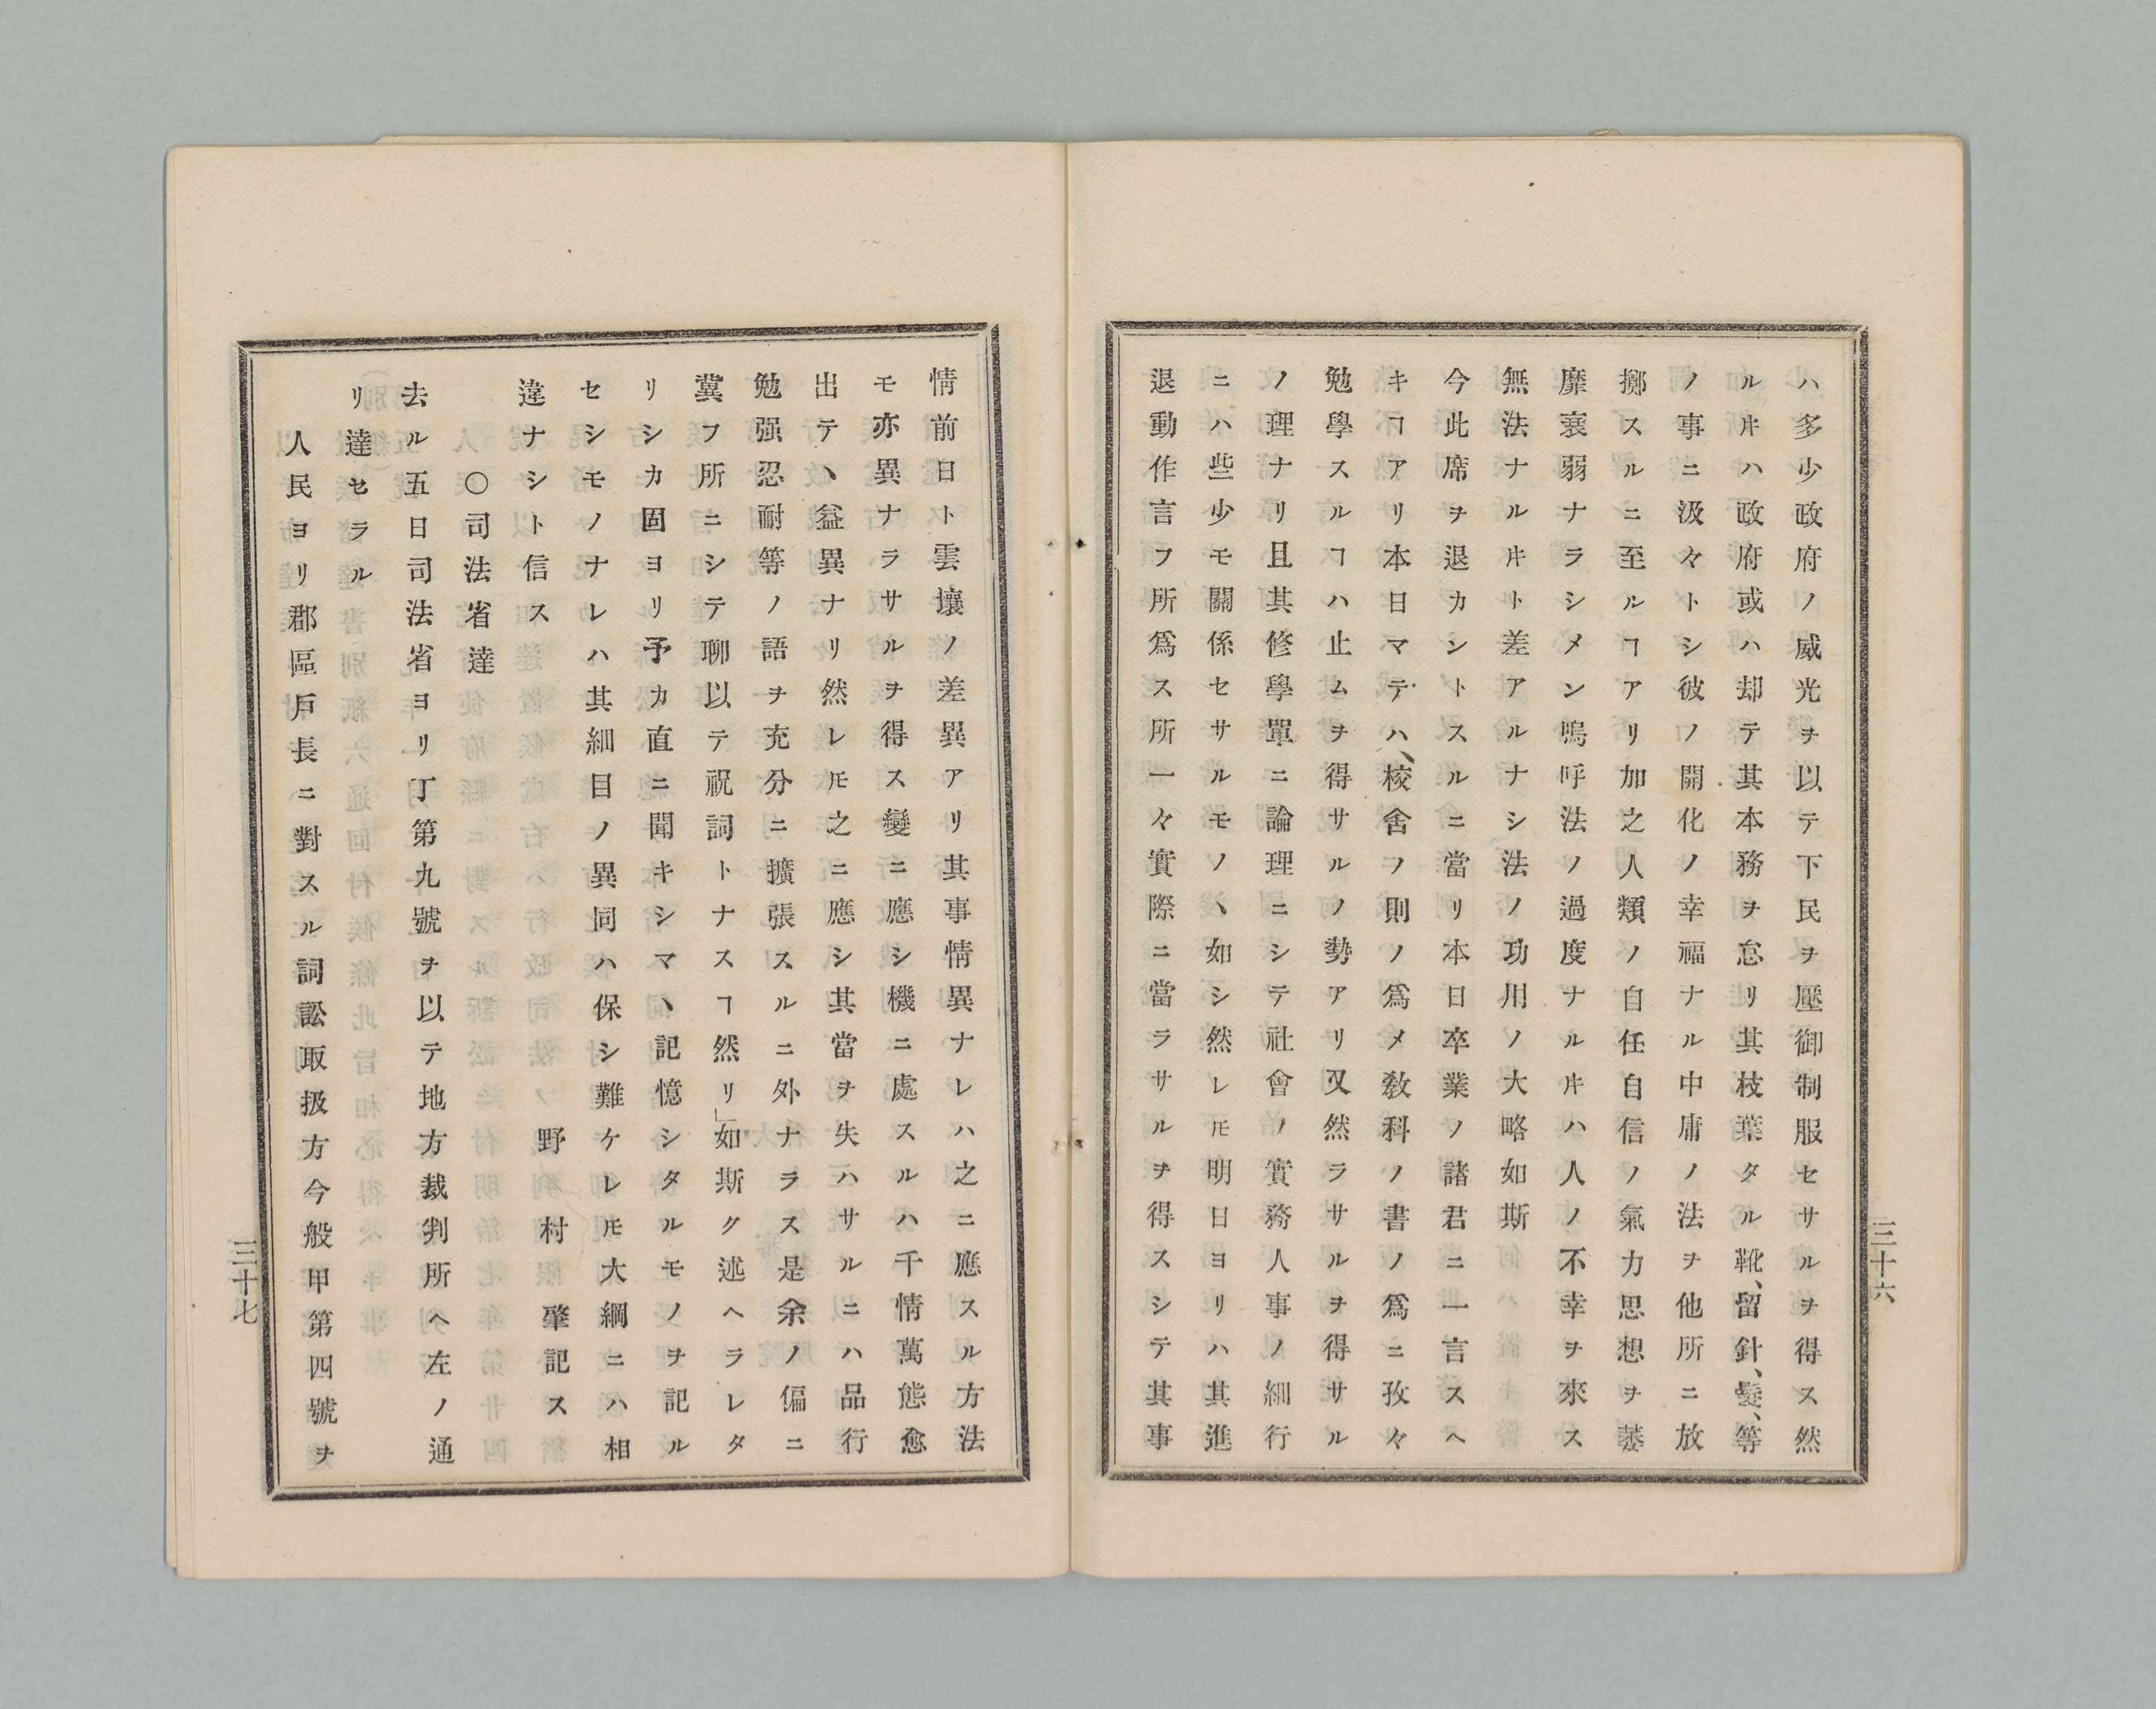 ハ多少政府ノ威光ヲ以テ下民ヲ壓御制服セサルヲ得ス然
ルㇰハ政府或ハ却テ其本務ヲ怠リ其枝葉タル靴、留針、髮、等
ノ事ニ汲々トシ彼ノ開化ノ幸福ナル中庸ノ法ヲ他所ニ放
擲スルニ至ルヿアリ加之人類ノ自任自信ノ氣力思想ヲ
靡衰弱ナラシメン嗚呼法ノ過度ナルㇰハ人ノ不幸ヲ來ス
無法ナルㇰト差アルナシ法ノ功用ノ大略如斯
今此席ヲ退カントスルニ當リ本日卒業ノ諸君ニ一言スヘ
キヿアリ本日マテハ、校舍ノ則ノ爲メ敎科ノ書ノ爲ニ孜々
勉學スルヿハ止ムヲ得サルノ勢アリ又然ラサルヲ得サル
ノ理ナリ且其修學單ニ論理ニシテ社會ノ實務人事ノ細行
ニハ些少モ關係セサルモノヽ如シ然レㇳモ明日ヨリハ其進
退動作言フ所爲ス所一々實際ニ當ラサルヲ得スシテ其事
三十六
情前日ト雲壤ノ差異アリ其事情異ナレハ之ニ應スル方法
モ亦異ナラサルヲ得ス變ニ應シ機ニ處スルハ千情萬態愈
出テヽ益異ナリ然レㇳモ之ニ應シ其當ヲ失ハサルニハ品行
勉强忍耐等ノ語ヲ充分ニ擴張スルニ外ナラス是余ノ偏ニ
冀フ所ニシテ聊以テ祝詞トナスヿ然リ」如斯ク述ヘラレタ
リシカ固ヨリ予カ直ニ聞キシマヽ記憶シタルモノヲ記ル
セシモノナレハ其細目ノ異同ハ保シ難ケレㇳモ大綱ニハ相
違ナシト信ス　野村　肇記ス
〇司法省達
去ル五日司法省ヨリ丁第九號ヲ以テ地方裁判所ヘ左ノ通
リ達セラル
人民ヨリ郡區戶長ニ對スル詞訟取扱方今般甲第四號ヲ
三十七